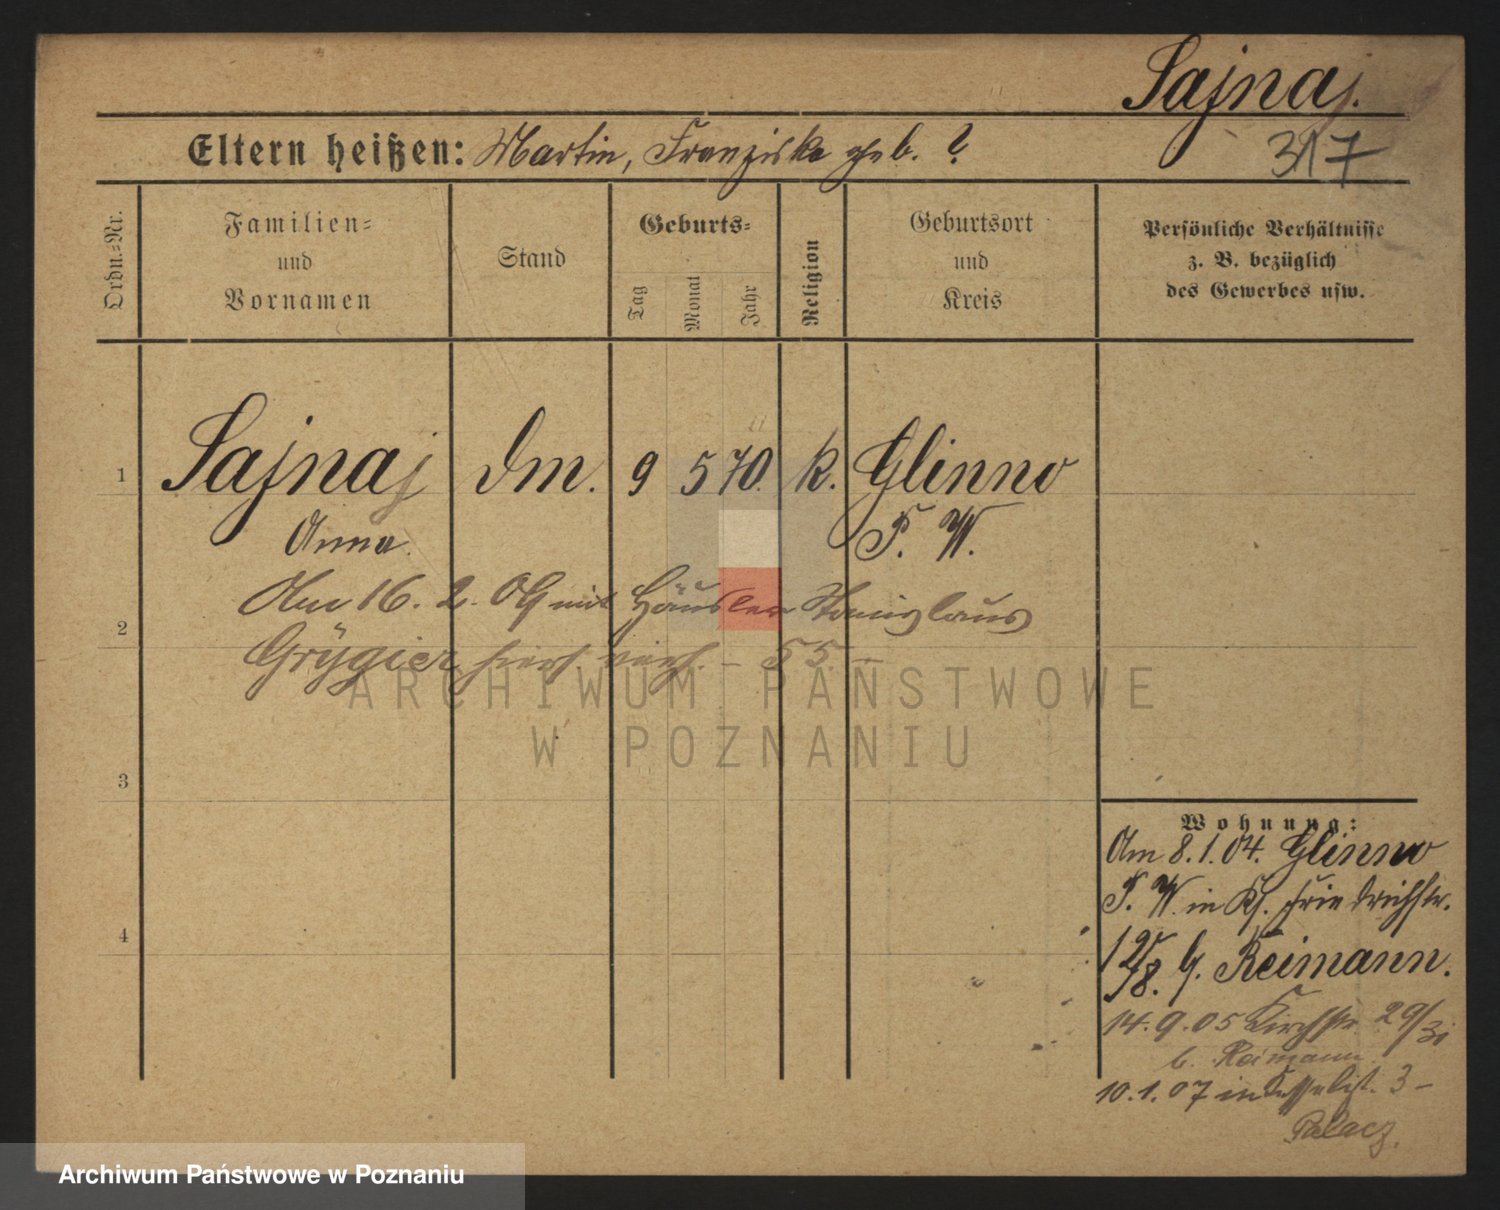 Sajnaj.
Eltern heißen: Martin, Franziska geb. ?
317
Ordn.=Nr.
Familien=
und
Vornamen
Stand
Geburts=
Tag
Monat
Jahr
Religion
Geburtsort
und
Kreis
Persönliche Verhältnisse
z. B. bezüglich
des Gewerbes usw.
1 Sajnaj dm. 9 5 70. k. Glinno
Anna. P. W.
Am 16. 2. 09 mit Häusler Stanislaus
2
Grÿgier hiers. verh. – S 5. –
ARCHIWUM PAŃSTWOWE
W POZNANIU
3
4
Wohnung:
Am 8.1.04. Glinno
P. W. in Friedrichstr.
b. Reimann.
14.9.05 Kirchstr 29/31
b. Reimann
10.1.07 in 3 –
Palacz.
Archiwum Państwowe w Poznaniu